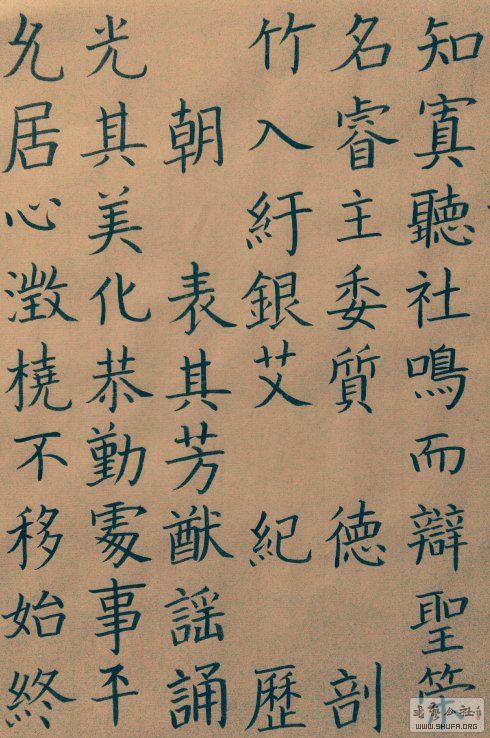 知寘聽社鳴而辯聖
名睿主委質 德 剖
竹入紆銀艾 紀 歷
朝 表其芳猷謡誦
光其美化恭勤處事平
允居心澂橈不移始終
书艺公社
WWW.SHUFA.ORG